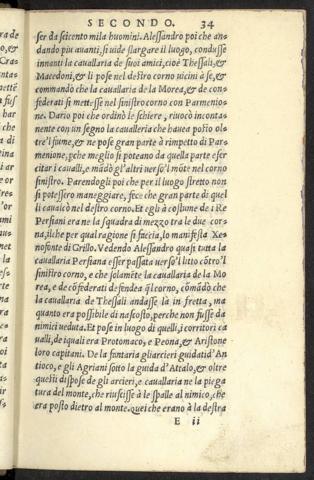 SECONDO. 34
ser da seicento mila huomini. Alessandro poi che an=
dando piu avanti, si uide slargare il luogo, condusse
innanti la cauallaria de suoi amici, cioè Thessali, &
Macedoni, & li pose nel destro corno uicini à se, &
commandò che la cauallaria de la Morea, & de con=
federati si mettesse nel sinistro corno con Parmenio=
ne. Dario poi che ordinò le schiere, riuocò inconta=
nente con un segno la caualleria che hauea posto ol=
tre'l fiume, & ne pose gran parte à rimpetto di Par=
menione, pche meglio si poteano da quella parte eser
citar i caualli, e mãdò gl'altri uerso'l mõte nel corno
sinistro. Parendogli poi che per il luogo stretto non
si potessero maneggiare, fece che gran parte di quel
li caualcò nel destro corno. Et egli à costume de i Re
Persiani era ne la squadra di mezzo tra le due cor=
na, ilche per qual ragione si faccia, lo manifesta Xe=
nofonte di Grillo. Vedendo Alessandro quasi tutta la
cauallaria Persiana esser passata uerso'l lito cõtro'l
sinistro corno, e che solamẽte la cauallaria de la Mo
rea, e de cõfederati defendea q̃l corno, cõmãdò che
la cauallaria de Thessali andasse là in fretta, ma
quanto era possibile di nascosto, perche non fusse da
nimici ueduta. Et pose in luogo di quelli, i corritori ca
ualli, de iquali era Protomaco, e Peona, & Aristone
loro capitani. De la fantaria gliarcieri guidati d'An
tioco, e gli Agriani sotto la guida d'Attalo, & oltre
questi dispose de gli arcieri, e cauallaria ne la piega
tura del monte, che riuscisse à le spalle al nimico, che
era posto dietro al monte. quei che erano à la destra
E ii